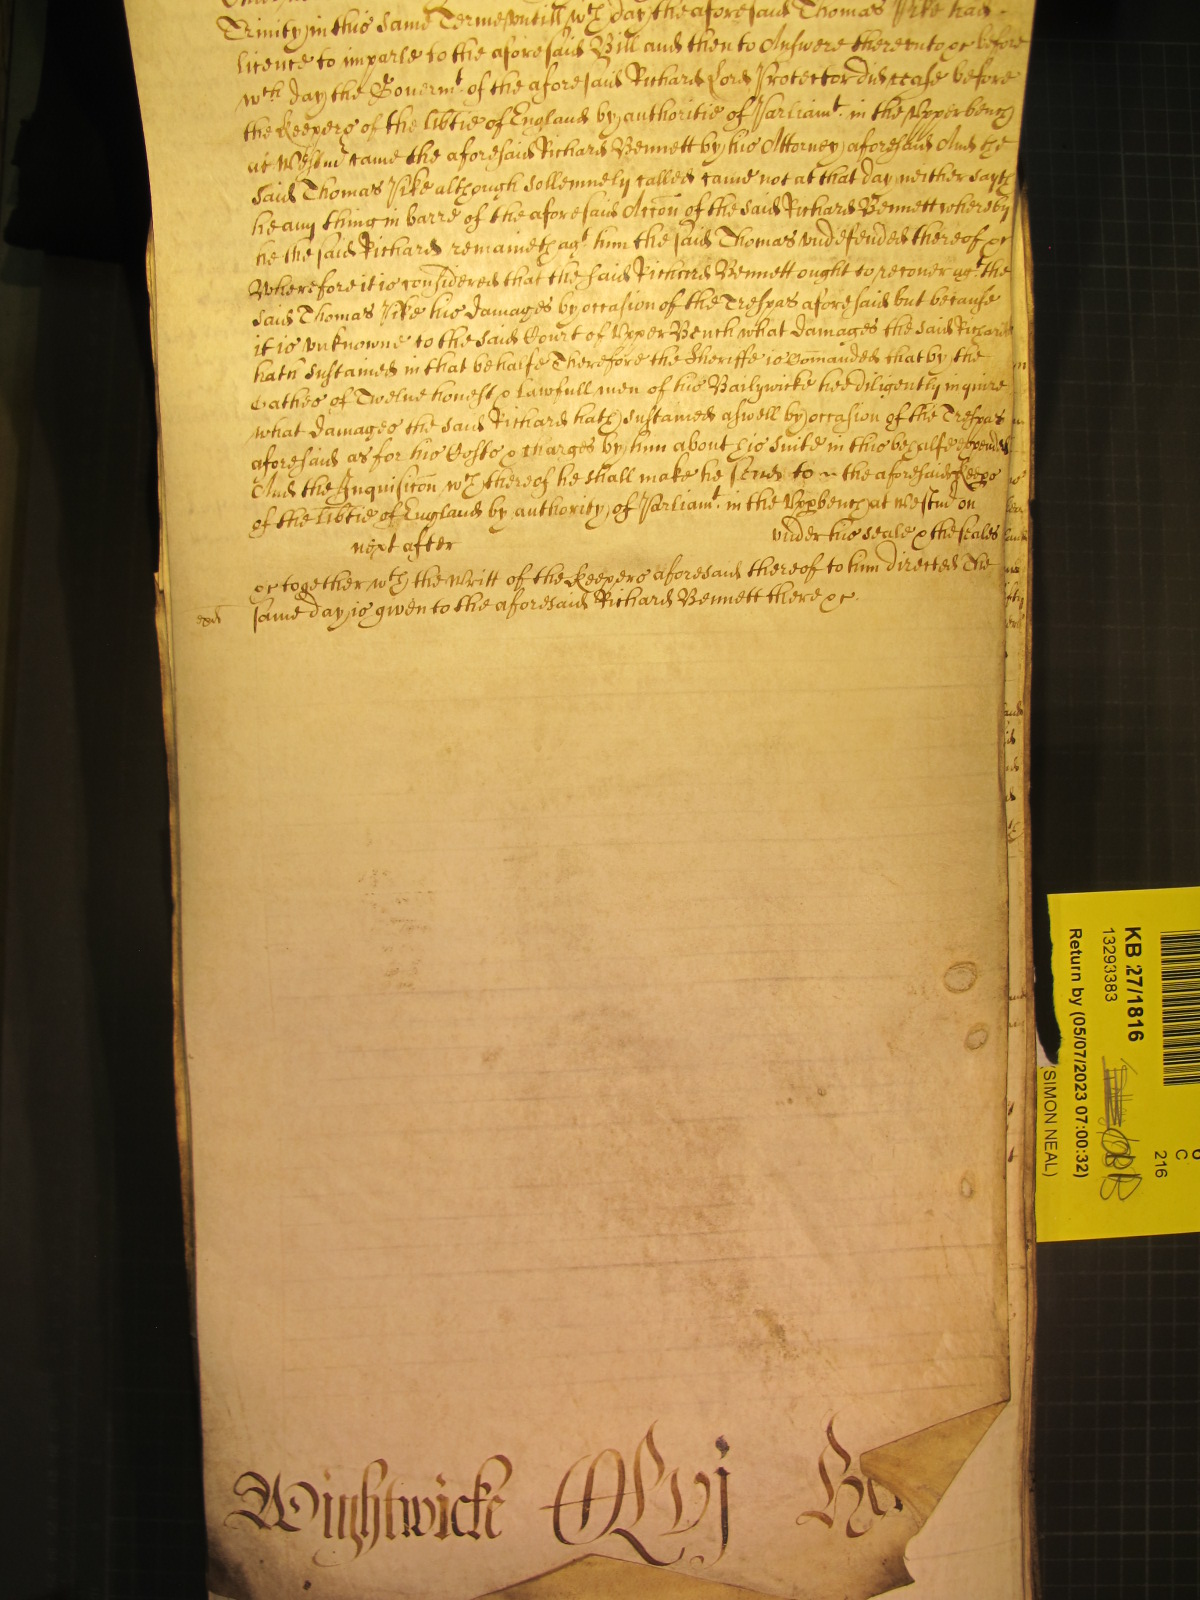 Trinity in this same Terme untill wch day the aforesaid Thomas Pike had
licence to imparle to the aforesaid Bill and then to Answere thereunto &c before
wch day the Governmt of the aforesaid Richard Lord Protector did cease before
the Keepers of the libtie of England by authoritie of Parliamt in the Upper bench
at Westmr came the aforesaid Richard Bennett by his Attorney aforesaid And the
said Thomas Pike although sollemnely called came not at that day neither sayth
he any thing in barre of the aforesaid Accon of the said Richard Bennett whereby
he the said Richard remaineth agt him the said Thomas undefended thereof &c
Wherefore it is considered that the said Richard Bennett ought to recover agt the
said Thomas Pike his damages by occasion of the Trespas aforesaid but because
it is unknowne to the said Court of Upper Bench what damages the said Richard
hath sustained in that behalfe Therefore the Sheriffe is Comanded that by the
Oathes of Twelve honest & lawfull men of his Bailywicke hee diligently inquire
what damages the said Richard hath sustained aswell by occasion of the Trespas
aforesaid as for his Costs & charges by him about his suite in this behalfe expended
And the Inquisicon wch thereof he shall make he send to the aforesaid Keeps
of the libtie of England by authority of Parliamt in the Uppbench at Westm on
next after under his seale & the seales
&c together wth the Writt of the Keepers aforesaid thereof to him directed The
same day is given to the aforesaid Richard Bennett there &c
Wightwicke
KB 27/1816
13293383
Return by (05/07/2023 07:00:32)
(SIMON NEAL)
C
216